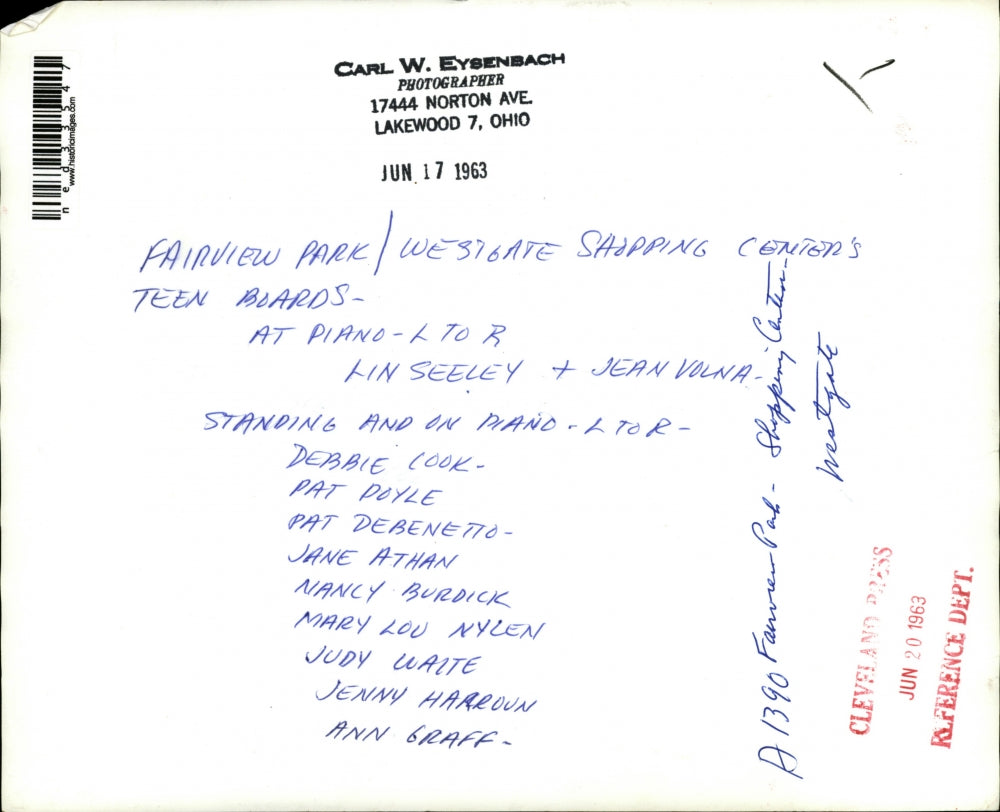 CARL W. EYSENBACH
PHOTOGRAPHER
17444 NORTON AVE.
LAKEWOOD 7, OHIO
JUN 17 1963
FAIRVIEW PARK / WESTGATE SHOPPING CENTER'S
TEEN BOARDS-
AT PIANO - L TO R
LIN SEELEY + JEAN VOLNA-
STANDING AND ON PIANO - L TO R -
DEBBIE COOK-
PAT DOYLE
PAT DEBENETTO-
JANE ATHAN
NANCY BURDICK
MARY LOU NYLEN
JUDY WAITE
JENNY HARROUN
ANN GRAFF-
A 1390 Fairview Park - Shopping Center-
Westgate
CLEVELAND PRESS
JUN 20 1963
REFERENCE DEPT.
ned33547
www.historicimages.com